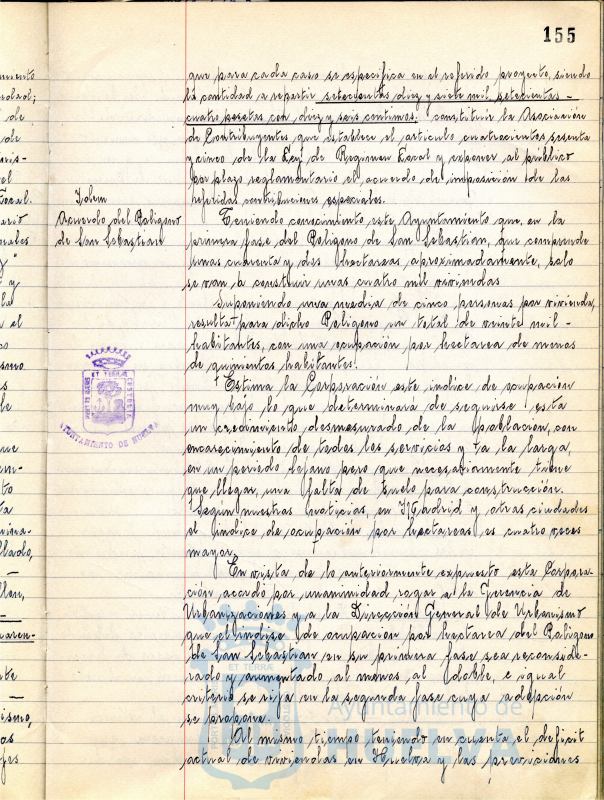 155
que para cada caso se especifica en el referido proyecto, siendo
la cantidad a repartir setecientas diez y siete mil setecientas
cuatro pesetas con diez y seis centimos. Constituir la Asociación
de Contribuyentes que establece el articulo cuatrocientos sesenta
y cinco de la Ley de Regimen Local y exponer al público
por plazo reglamentario el acuerdo de imposición de las
referidas contribuciones especiales.
Idem
Acuerdo del Poligono
de San Sebastian
Teniendo conocimiento este Ayuntamiento que en la
primera fase del Poligono de San Sebastian, que comprende
unas cuarenta y dos Hectareas aproximadamente, solo
se van a construir unas cuatro mil viviendas
Suponiendo una media de cinco personas por vivienda,
resulta para dicho Poligono un total de veinte mil
habitantes, con una ocupación por hectarea de menos
de quinientos habitantes.
Estima la Corporación este indice de ocupación
muy bajo lo que determinará de seguirse esta
un crecimiento desmesurado de la Población, con
encarecimiento de todos los servicios y a la larga,
en un periodo lejano pero que necesariamente tiene
que llegar, una falta de suelo para construcción.
Segun nuestras noticias, en Madrid y otras ciudades
el indice de ocupación por hectareas es cuatro veces
mayor.
En vista de lo anteriormente expuesto esta Corpora-
ción acordó por unanimidad rogar a la Gerencia de
Urbanizaciones y a la Dirección General de Urbanismo
que el indise de ocupación por hectarea del Poligono
de San Sebastian en su primera fase sea reconside-
rado y aumentado al menos al doble, e igual
criterio se siga en la segunda fase cuya adopción
se propone.
Al mismo tiempo teniendo en cuenta el deficit
actual de viviendas en Huelva y las previsiones
AYUNTAMIENTO DE HUELVA
Ayuntamiento de
HUELVA